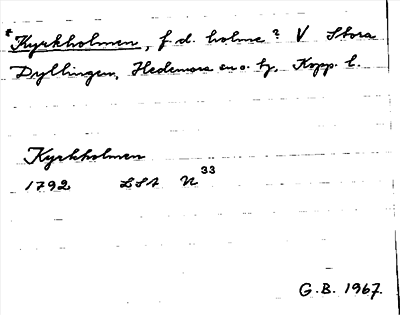 *Kyrkholmen, f.d. holme? V Stora
Dyllingen, Hedemora sn o. hg, Kopp. l.
Kyrkholmen
1792 LSA N 33
G.B. 1967.